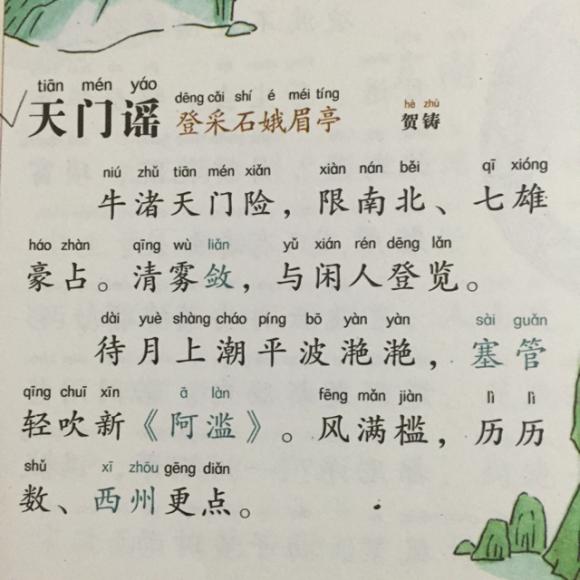 tiān mén yáo dēng cǎi shí é méi tíng hè zhù
天门谣 登采石娥眉亭 贺铸
niú zhǔ tiān mén xiǎn xiàn nán běi qī xióng
牛渚天门险，限南北、七雄
háo zhàn qīng wù liǎn yǔ xián rén dēng lǎn
豪占。清雾敛，与闲人登览。
dài yuè shàng cháo píng bō yàn yàn sài guǎn
待月上潮平波滟滟，塞管
qīng chuī xīn ā làn fēng mǎn jiàn lì lì
轻吹新《阿滥》。风满槛，历历
shǔ xī zhōu gēng diǎn
数、西州更点。